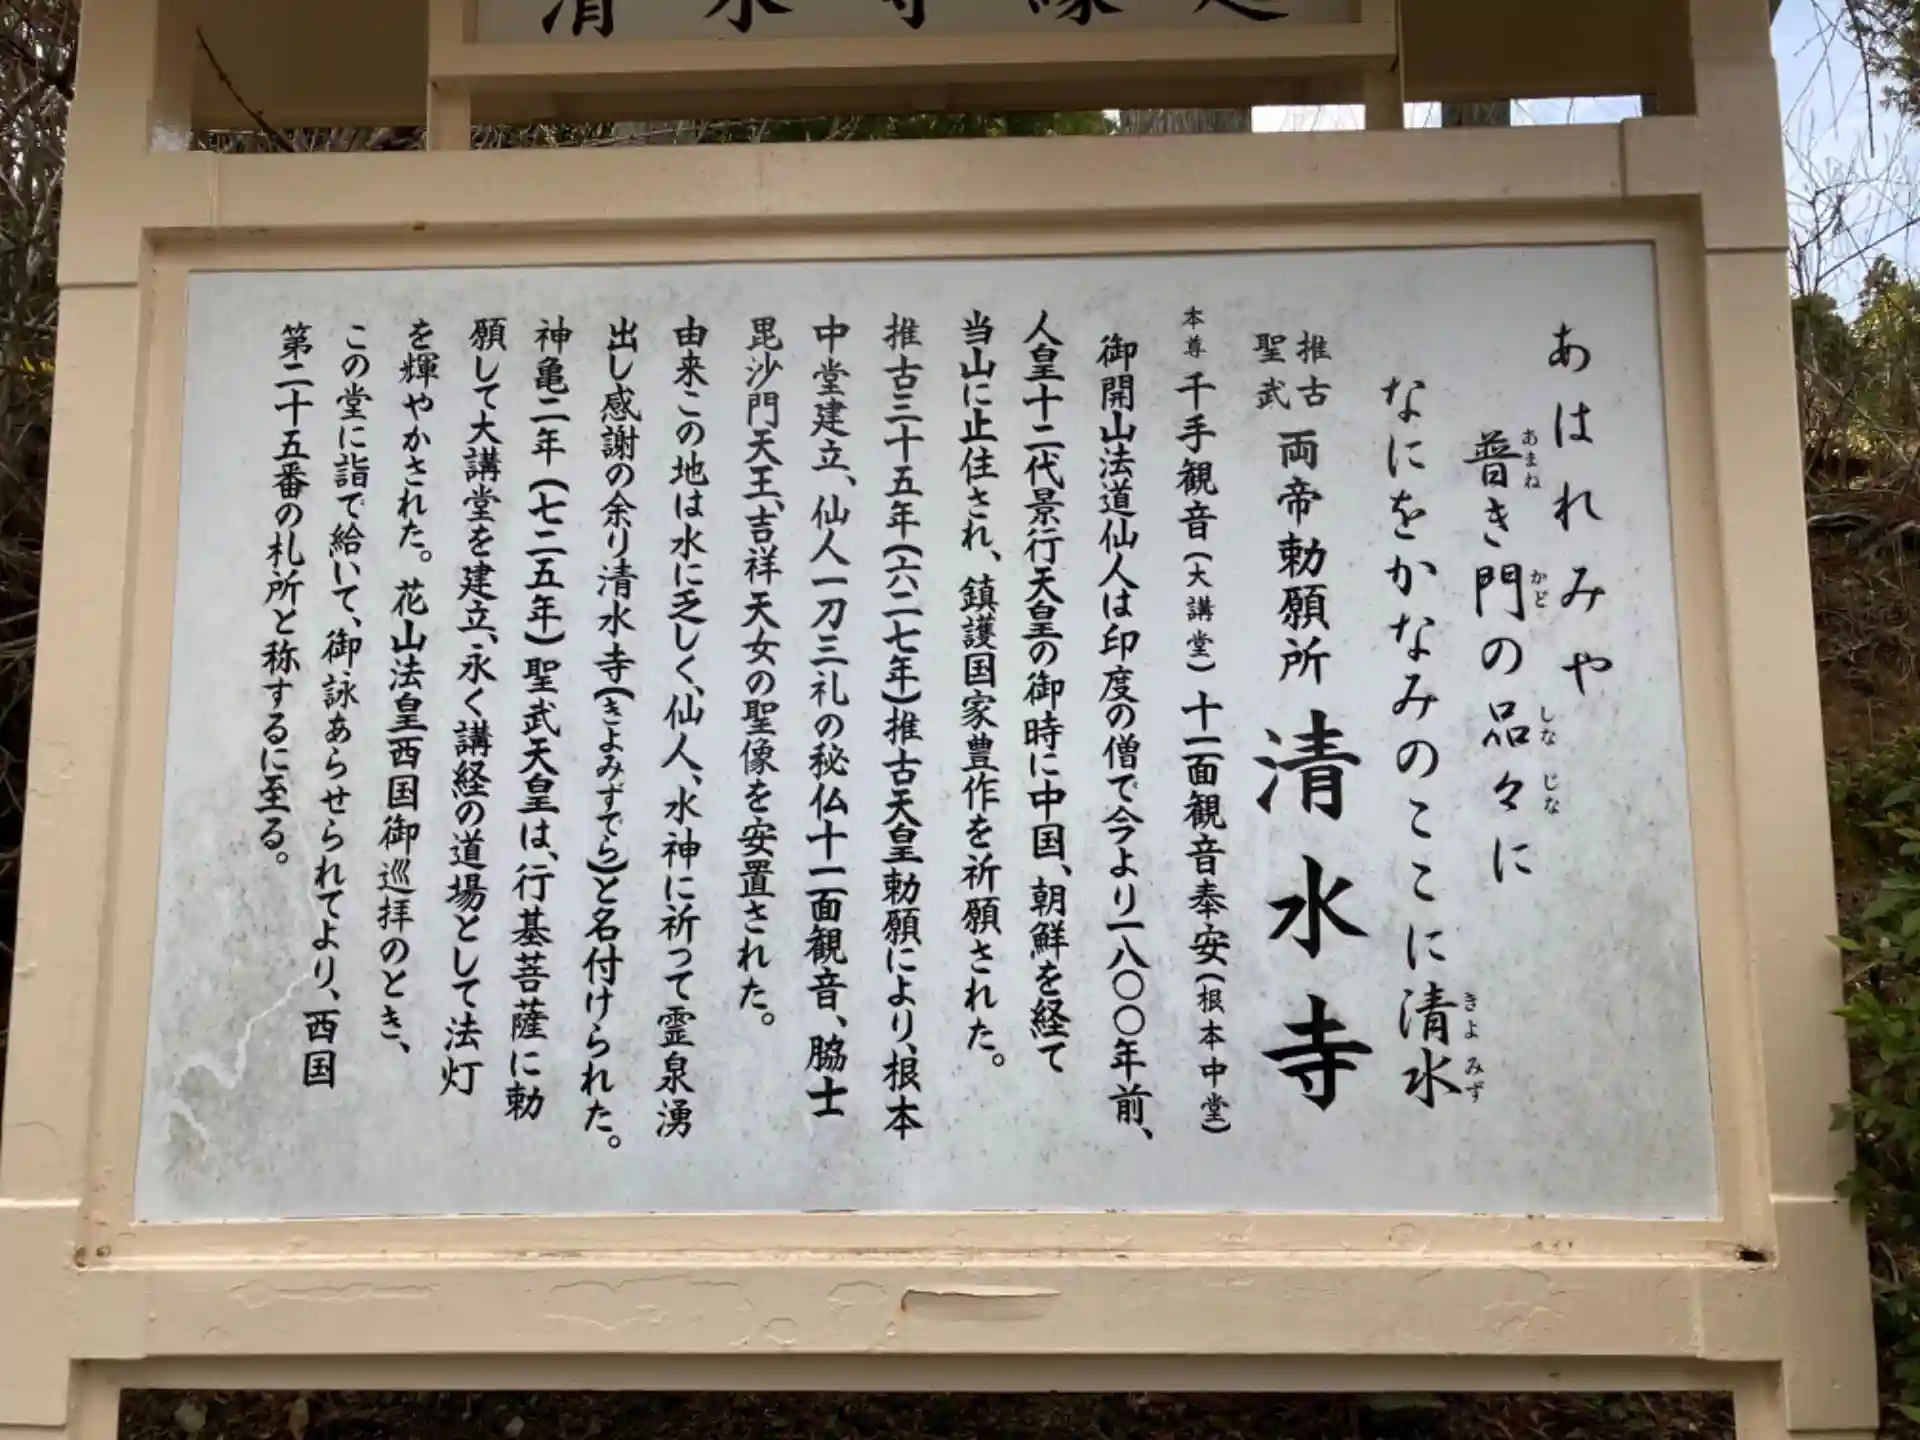 清水寺縁起
あはれみや
普き門の品々に
あまね
かど
しなじな
なにをかなみのここに清水
きよみず
推古
聖武
両帝勅願所 清水寺
本尊 千手観音(大講堂)十一面観音奉安(根本中堂)
御開山法道仙人は印度の僧で今より一八〇〇年前、
人皇十二代景行天皇の御時に中国、朝鮮を経て
当山に止住され、鎮護国家豊作を祈願された。
推古三十五年(六二七年)推古天皇勅願により、根本
中堂建立、仙人一刀三礼の秘仏十一面観音、脇士
毘沙門天王、吉祥天女の聖像を安置された。
由来この地は水に乏しく、仙人、水神に祈って霊泉湧
出し感謝の余り清水寺(きよみずでら)と名付けられた。
神亀二年(七二五年)聖武天皇は、行基菩薩に勅
願して大講堂を建立、永く講経の道場として法灯
を輝やかされた。花山法皇西国御巡拝のとき、
この堂に詣で給いて、御詠あらせられてより、西国
第二十五番の札所と称するに至る。